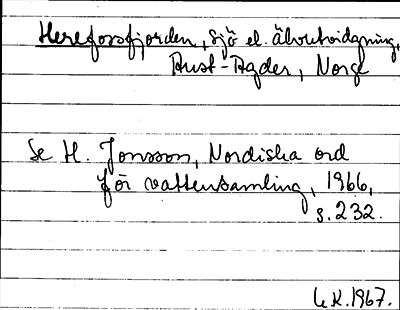 Herefossfjorden, sjö el. älvutvidgning,
Aust-Agder, Norge
Se H. Jonsson, Nordiska ord
för vattensamling, 1966,
s. 232.
LK. 1967.